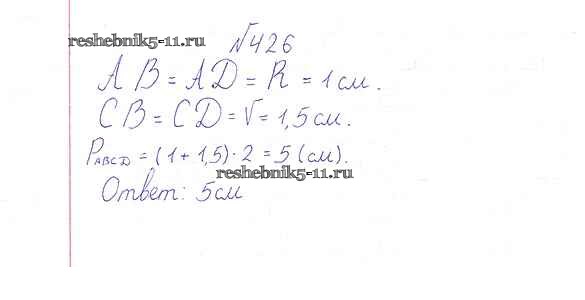 reshebnik5-11.ru
№426
AB = AD = R = 1 см.
CB = CD = r = 1,5 см.
PABCD = (1 + 1,5) · 2 = 5 (см).
reshebnik5-11.ru
Ответ: 5см